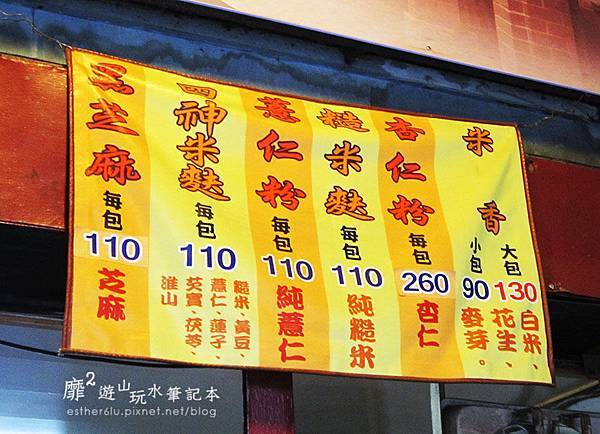 黑芝麻
每包
110
芝麻
四神米麩
每包
110
糙米、黃豆、
薏仁、蓮子、
芡實、茯苓、
淮山
薏仁粉
每包
110
純薏仁
糙米麩
每包
110
純糙米
杏仁粉
每包
260
杏仁
米香
大包
130
小包
90
白米、
花生、
麥芽。
靡²遊山玩水筆記本
esther6lu.pixnet.net/blog